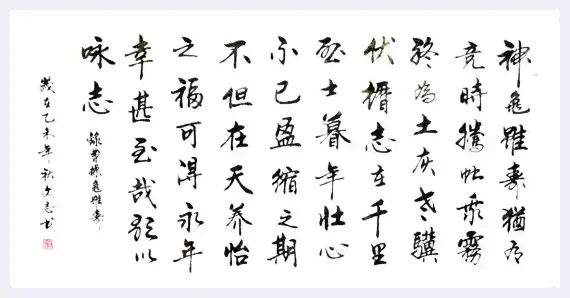 神龟雖寿猶有
竟時騰蛇乘霧
終為土灰老驥
伏櫪志在千里
烈士暮年壮心
不已盈縮之期
不但在天养怡
之福可得永年
幸甚至哉歌以
咏志
錄曹操龟雖寿
歲在乙未年秋文志书